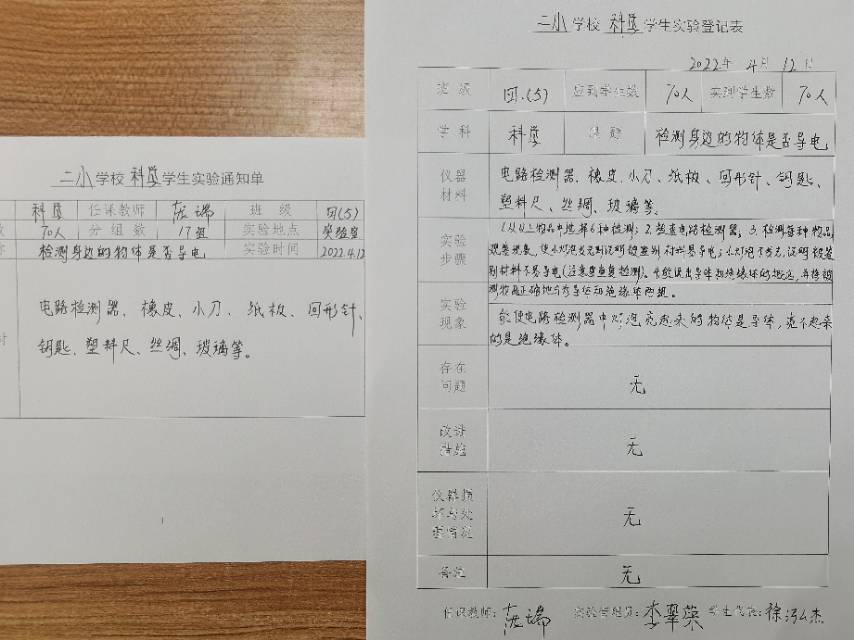 二小学校 科学 学生实验通知单
科学 任课教师 班级 四(5)
70人 分组数 17组 实验地点 实验室
检测身边的物体是否导电 实验时间 2022.4.12
电路检测器、橡皮、小刀、纸板、回形针、
钥匙、塑料尺、丝绸、玻璃等。
二小学校 科学 学生实验登记表
2022年 4月 12日
班级 四.(5) 应到学生数 70人 实到学生数 70人
学科 科学 课题 检测身边的物体是否导电
仪器材料 电路检测器、橡皮、小刀、纸板、回形针、钥匙、
塑料尺、丝绸、玻璃等。
实验步骤 1.从以上物品中选择6种检测；2.检查电路检测器；3.检测每种物品，
观察现象，使小灯泡发光则说明被鉴别材料易导电；小灯泡不发光，说明被鉴
别材料不易导电(注意要重复检测)。能说出导体和绝缘体的概念，并将被
测物品正确地分为导体和绝缘体两组。
实验现象 能使电路检测器中灯泡亮起来的物体是导体，亮不起来
的是绝缘体。
存在问题 无
改进措施 无
仪器损坏与处理情况 无
备注 无
任课教师： 实验管理员：李翠英 学生代表：徐泓杰